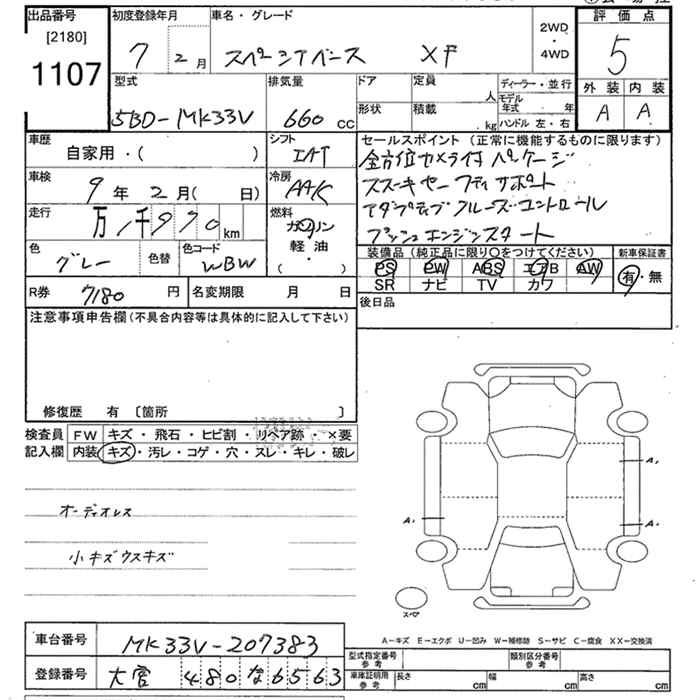 出品番号 初度登録年月 車名・グレード 2WD・4WD 評価点
[2180] 1107 7 2月 スペーシアベース XF 5
型式 排気量 ドア 定員 人 ディーラー・並行 外装 内装
5BD-MK33V 660 cc 形状 積載 kg モデル年式 年 ハンドル 左・右 A A
車歴 自家用・( ) シフト IAT セールスポイント (正常に機能するものに限ります)
全方位カメラ付パッケージ
車検 9年2月( 日) 冷房 AAC スズキセーフティサポート
走行 万1千990km 燃料 ガソリン 軽油 ( ・ ) アダプティブクルーズコントロール
プッシュエンジンスタート
色 グレー 色替 色コード WBW 装備品 (純正品に限り〇をつけてください) 新車保証書
PS PW ABS エアB AW 有・無
SR ナビ TV カワ
R券 7180円 名変期限 月 日 後日品
注意事項申告欄(不具合内容等は具体的に記入して下さい)
修復歴 有 〔箇所 〕
検査員 FW キズ・飛石・ヒビ割・リペア跡・×要
記入欄 内装 キズ・汚レ・コゲ・穴・スレ・キレ・破レ
オーディオレス
小キズウスキズ
A₁
A₁ A₁
スペア
A-キズ E-エクボ U-凹み W-補修跡 S-サビ C-腐食 XX-交換済
車台番号 MK33V-207383 型式指定番号 参考 類別区分番号 参考
登録番号 大宮 480 な 6563 車庫証明用 参考 長さ cm 幅 cm 高さ cm